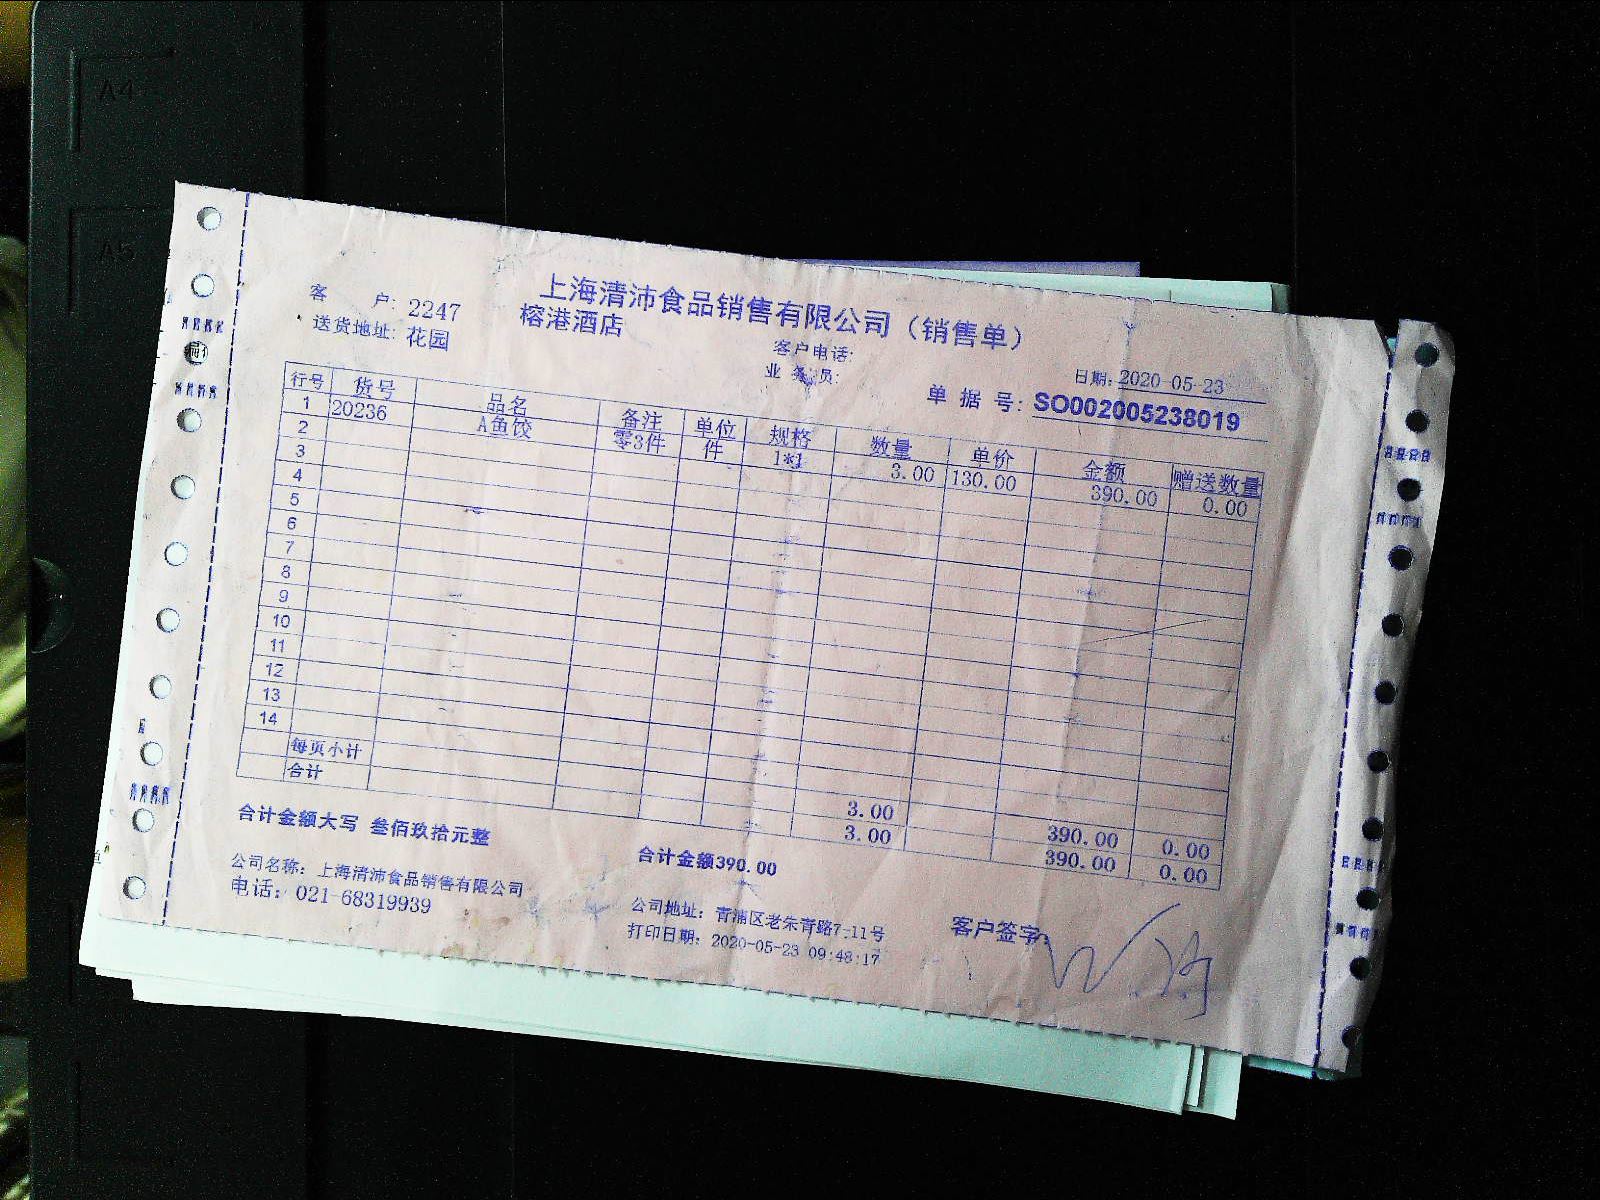 A4
A5
上海清沛食品销售有限公司（销售单）
客 户: 2247 榕港酒店
客户电话:
日期: 2020-05-23
送货地址: 花园
业务员:
单据号: SO002005238019
行号 货号 品名 备注 单位 规格 数量 单价 金额 赠送数量
1 20236 A鱼饺 零3件 件 1*1 3.00 130.00 390.00 0.00
2
3
4
5
6
7
8
9
10
11
12
13
14
每页小计 3.00 390.00 0.00
合计 3.00 390.00 0.00
合计金额大写 叁佰玖拾元整 合计金额390.00
公司名称: 上海清沛食品销售有限公司 公司地址: 青浦区老朱青路7-11号 客户签字:
电话: 021-68319939 打印日期: 2020-05-23 09:48:17